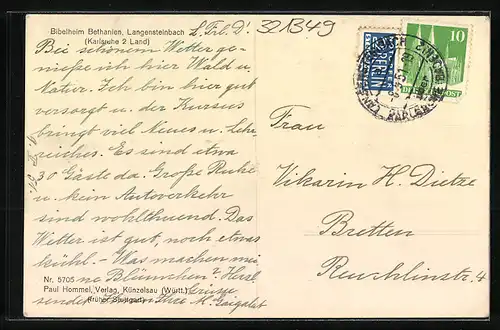 Bibelheim Bethanien, Langensteinbach
(Karlsruhe 2 Land)
L. Frl. D!
321349
Bei schönem Wetter ge-
nieße ich hier Wald u.
Natur. Ich bin hier gut
versorgt u. der Kursus
bringt viel Neues u. Lehr
reiches. Es sind etwa
30 Gäste da. Große Ruhe
u. kein Autoverkehr
sind wohlthuend. Das
Wetter ist gut, noch etwas
kühl. – Was machen mei
ne Blümchen? Herzl.
Grüsse
sendet Ihnen Ihre M.
Nr. 5705
Paul Hommel, Verlag, Künzelsau (Württ.)
(früher Stuttgart)
NOTOPFER
2 BERLIN
10
DEUTSCHE POST
LANGENSTEINBACH
KARLSRUHE
Frau
Vikarin H. Dietze
Bretten
Reuchlinstr. 4